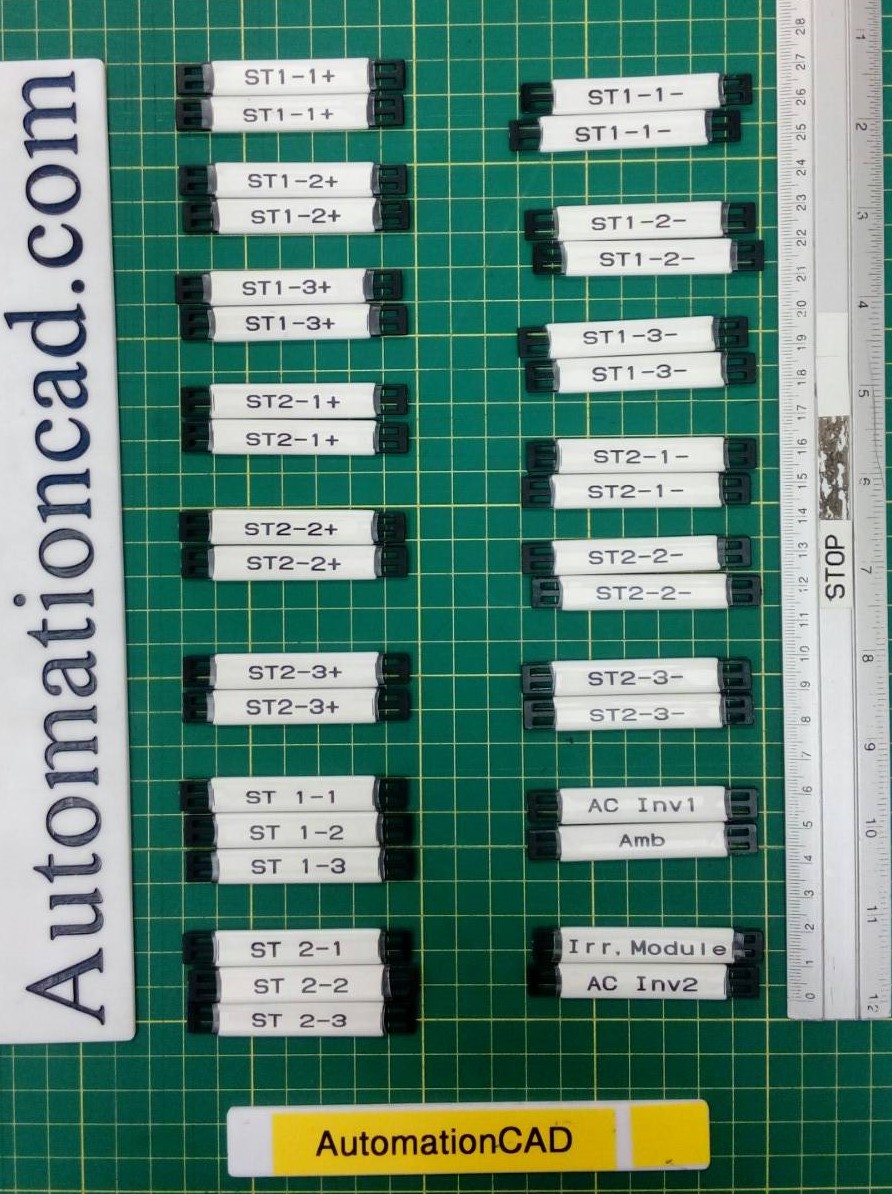 Automationcad.com
ST1-1+
ST1-1+
ST1-2+
ST1-2+
ST1-3+
ST1-3+
ST2-1+
ST2-1+
ST2-2+
ST2-2+
ST2-3+
ST2-3+
ST 1-1
ST 1-2
ST 1-3
ST 2-1
ST 2-2
ST 2-3
ST1-1-
ST1-1-
ST1-2-
ST1-2-
ST1-3-
ST1-3-
ST2-1-
ST2-1-
ST2-2-
ST2-2-
ST2-3-
ST2-3-
AC Inv1
Amb
Irr.Module
AC Inv2
28 27 26 25 24 23 22 21 20 19 18 17 16 15 14 13 12 11 10 9 8 7 6 5 4 3 2 1 0
STOP
1 2 3 4 5 6 7 8 9 10 11 12
AutomationCAD